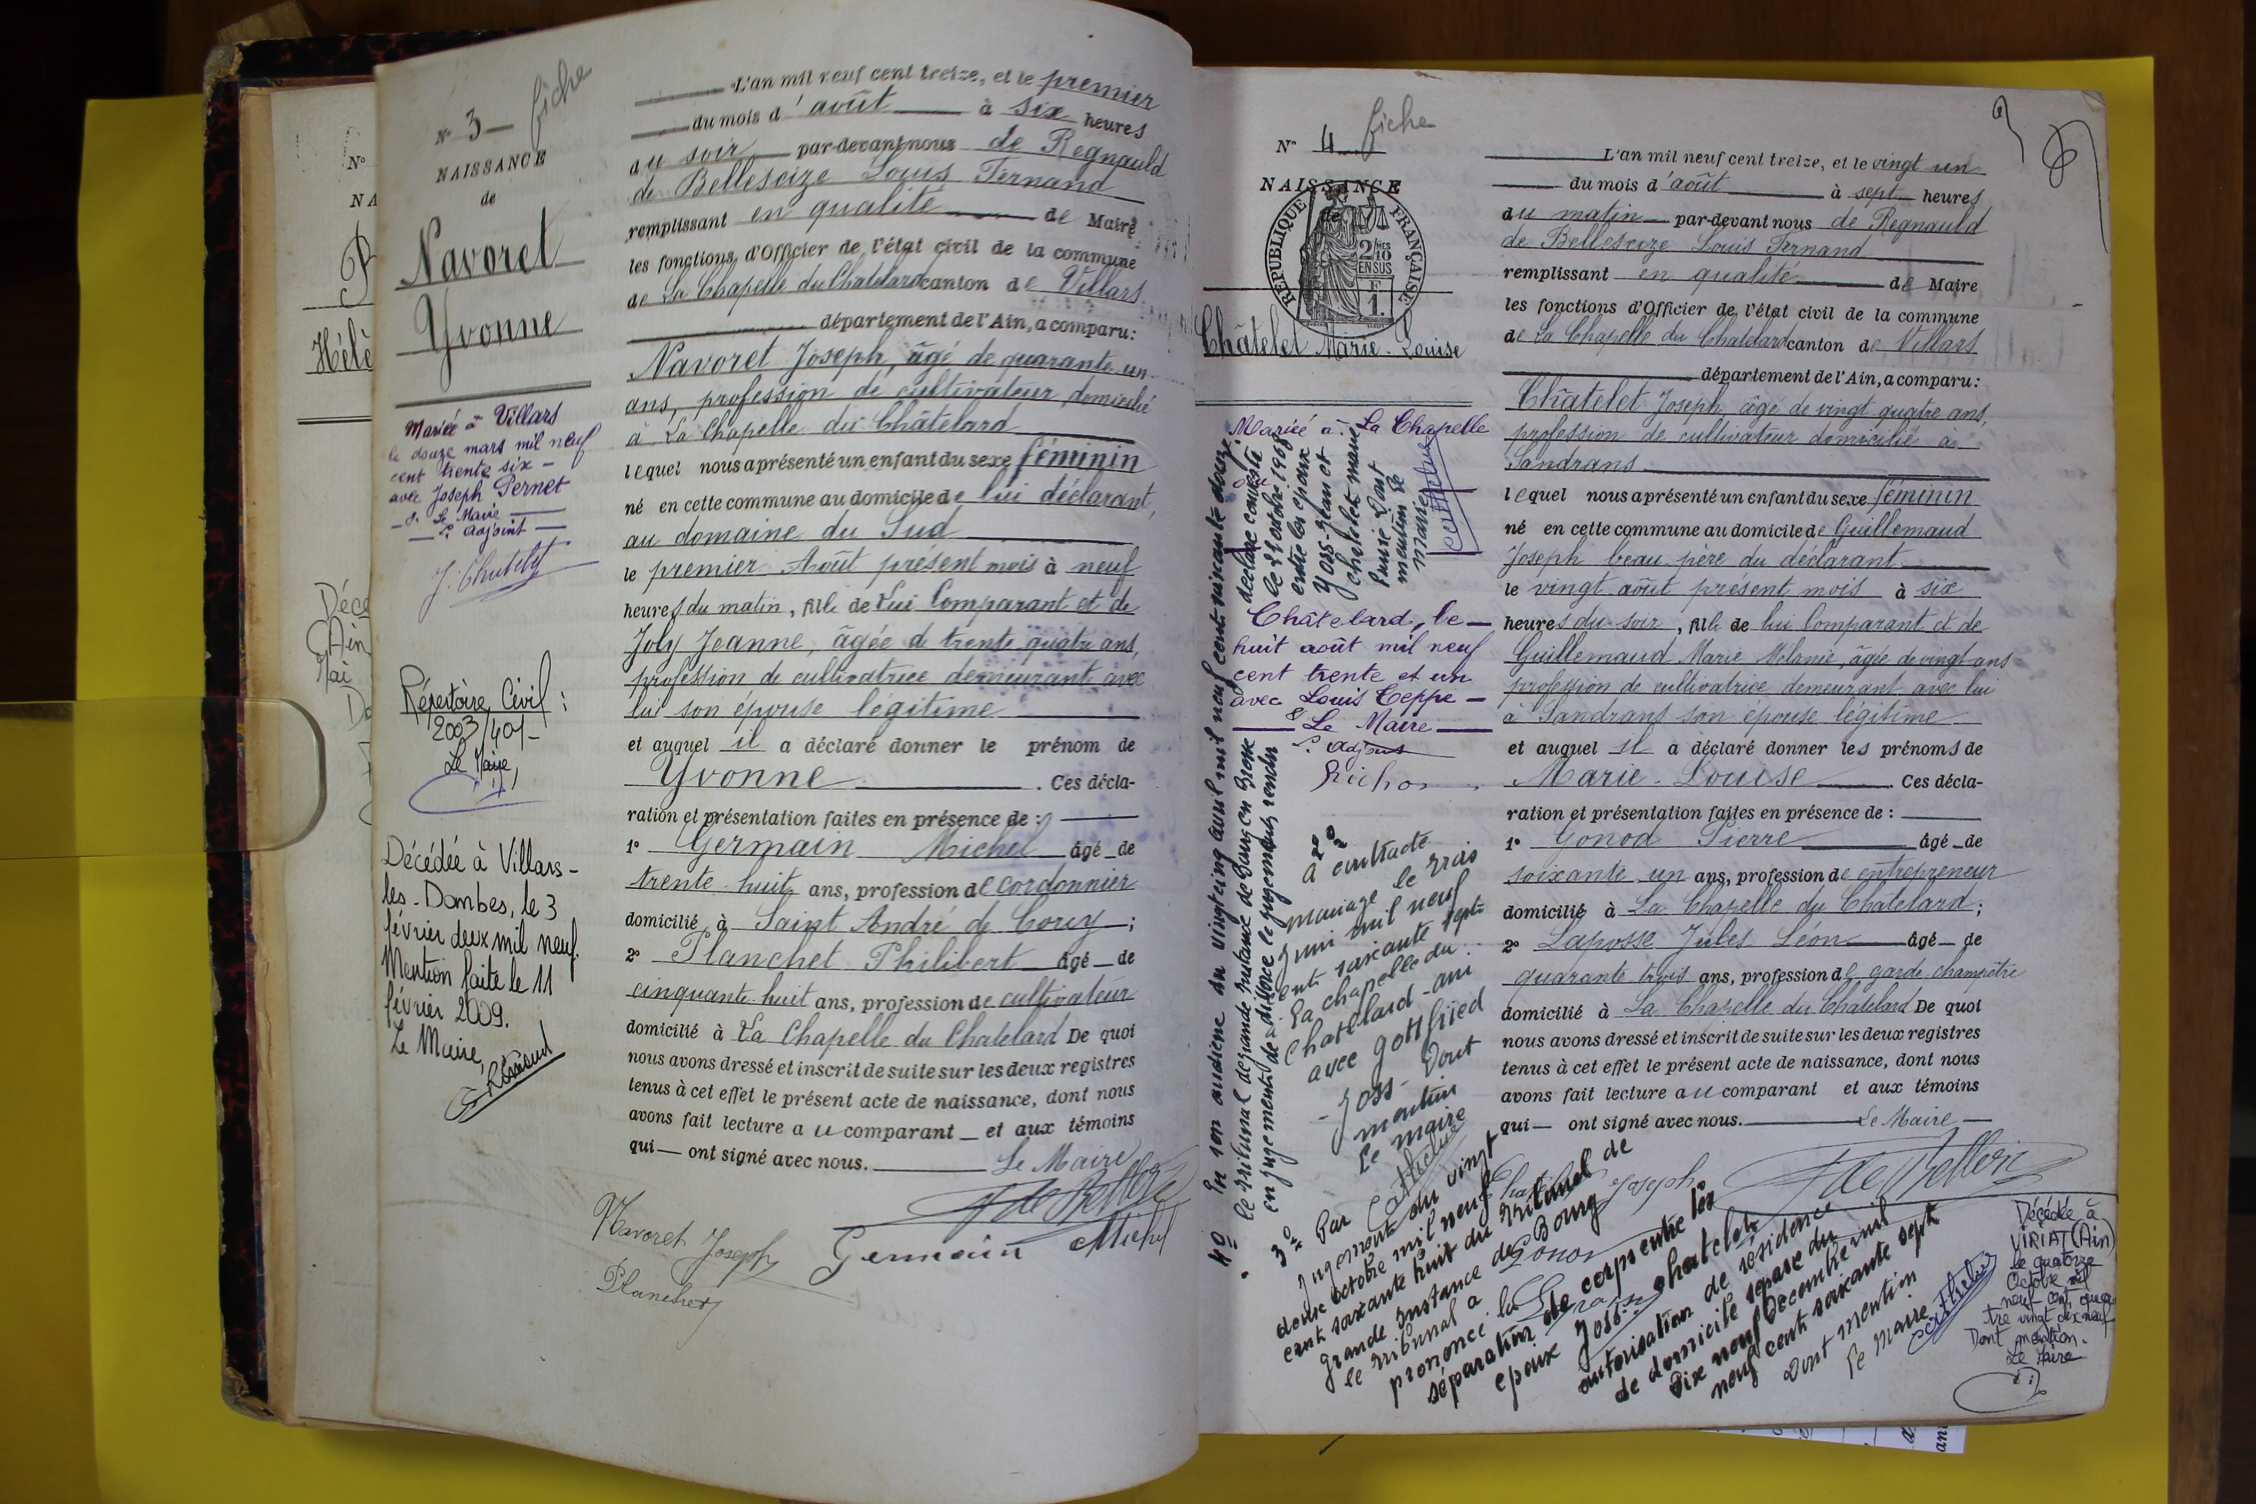 N° 3 — fiche
NAISSANCE
de
Navoret
Yvonne
Mariée à Villars
le douze mars mil neuf
cent trente six —
avec Joseph Pernet
Le Maire
Adjoint
Répertoire Civil :
2003/401-
Le Maire,
Décédée à Villars-
les-Dombes, le 3
février deux mil neuf.
Mention faite le 11
février 2009.
Le Maire,
L'an mil neuf cent treize, et le premier
du mois d'août à six heures
du soir par-devant nous de Regnauld
de Bellescize Louis Fernand
remplissant en qualité de Maire
les fonctions d'Officier de l'état civil de la commune
de La Chapelle du Chatelard canton de Villars
département de l'Ain, a comparu :
Navoret Joseph, âgé de quarante un
ans, profession de cultivateur domicilié
à La Chapelle du Châtelard
lequel nous a présenté un enfant du sexe féminin
né en cette commune au domicile de lui déclarant,
au domaine du Sud
le premier Août présent mois à neuf
heures du matin, fille de Lui Comparant et de
Joly Jeanne, âgée de trente quatre ans,
profession de cultivatrice demeurant avec
lui son épouse légitime
et auquel il a déclaré donner le prénom de
Yvonne . Ces décla-
ration et présentation faites en présence de :
1° Germain Michel âgé de
trente huit ans, profession de cordonnier
domicilié à Saint André de Corcy ;
2° Planchet Philibert âgé de
cinquante huit ans, profession de cultivateur
domicilié à La Chapelle du Chatelard De quoi
nous avons dressé et inscrit de suite sur les deux registres
tenus à cet effet le présent acte de naissance, dont nous
avons fait lecture au comparant et aux témoins
qui — ont signé avec nous. Le Maire
Navoret Joseph
Germain Michel
Planchet
N° 4 fiche
NAISSANCE
de
RÉPUBLIQUE FRANÇAISE
2/10
EN SUS
F
1.
Châtelet Marie-Louise
Mariée à La Chapelle
du
Châtelard, le —
huit août mil neuf
cent trente et un
avec Louis Teppe —
Le Maire
Adjoint
2°
a contracté
mariage le trois
juin mil neuf
cent soixante sept
La chapelle du
Chatelard
avec Gottfried
Joss - Dont
mention
Le maire
3° Par
jugement du vingt
deux octobre mil neuf
cent soixante huit du tribunal de
grande instance de Bourg
le tribunal a
prononcé la
séparation de corps entre les
epoux Joss - chatelet
autorisation de résidence
de domicile séparé du
dix neuf Decembre mil
neuf cent soixante sept
Dont mention
Le Maire
4° En son audience du vingt cinq avril mil neuf cent soixante douze
le tribunal de grande instance de Bourg en Bresse
en jugement de divorce le jugement rendu
déclare convertie
entre les epoux
Joss-Jean et
chatelet marie
Louise Dont
mention le
maire
L'an mil neuf cent treize, et le vingt un
du mois d'août à sept heures
du matin par-devant nous de Regnauld
de Bellescize Louis Fernand
remplissant en qualité de Maire
les fonctions d'Officier de l'état civil de la commune
de La Chapelle du Chatelard canton de Villars
département de l'Ain, a comparu :
Châtelet Joseph, âgé de vingt quatre ans,
profession de cultivateur domicilié à
Sandrans
lequel nous a présenté un enfant du sexe féminin
né en cette commune au domicile de Guillemaud
Joseph beau père du déclarant
le vingt août présent mois à six
heures du soir, fille de lui Comparant et de
Guillemaud Marie Mélanie, âgée de vingt ans
profession de cultivatrice demeurant avec lui
à Sandrans son épouse légitime
et auquel il a déclaré donner les prénoms de
Marie-Louise . Ces décla-
ration et présentation faites en présence de :
1° Gonod Pierre âgé de
soixante un ans, profession de entrepreneur
domicilié à La Chapelle du Chatelard ;
2° Laposse Jules Léon âgé — de
quarante trois ans, profession de garde champêtre
domicilié à La Chapelle du Chatelard De quoi
nous avons dressé et inscrit de suite sur les deux registres
tenus à cet effet le présent acte de naissance, dont nous
avons fait lecture au comparant et aux témoins
qui — ont signé avec nous. Le Maire
Joseph
Décédée à
VIRIAT (Ain)
le quatorze
Octobre mil
neuf cent qua
tre vingt dix neuf
Dont mention.
Le Maire